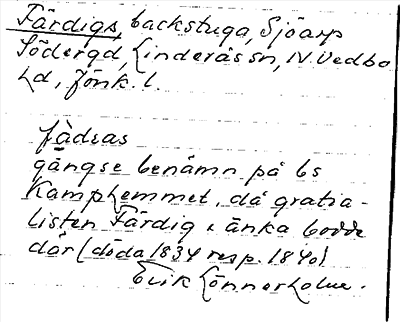 Färdigs, backstuga, Sjöarp
Södergd, Linderås sn, N. Vedbo
hd, Jönk. l.
fàdsas
gängse benämn på bs
Kamphemmet, då gratia-
listen Färdig s änka bodde
där (döda 1834 resp. 1840)
Erik Lönnerholm.